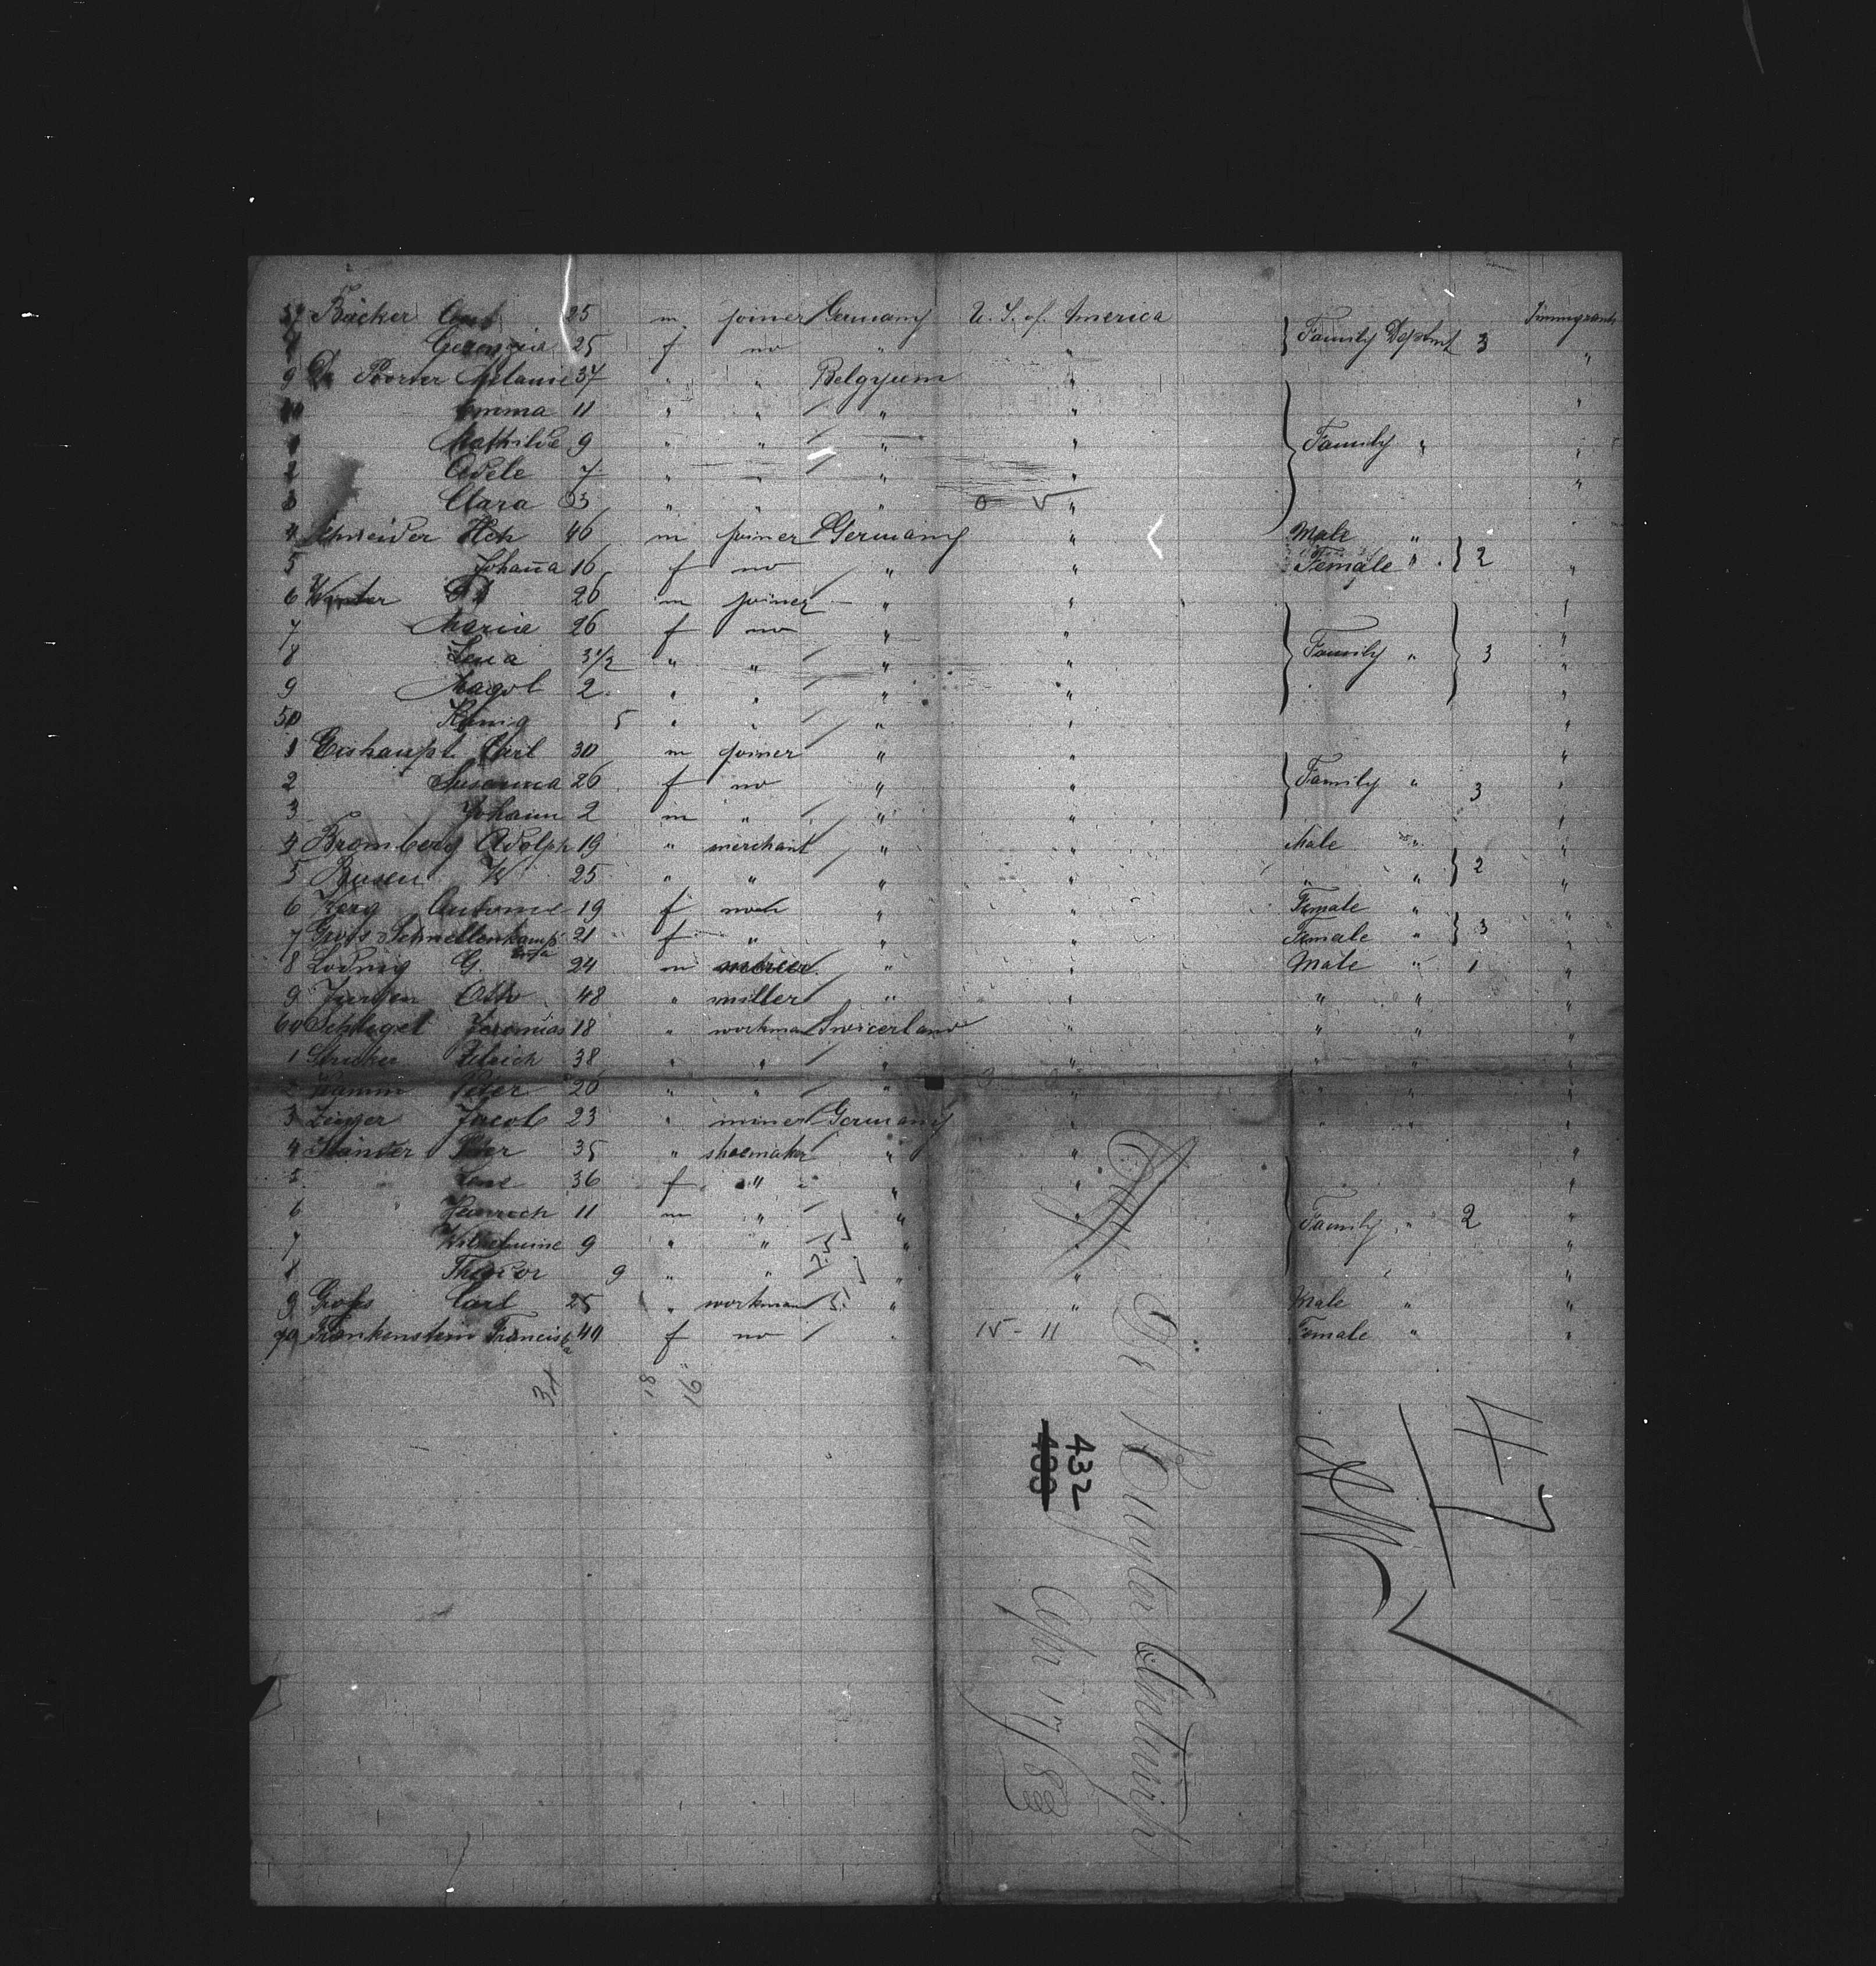 37 Bäcker 25 m joiner Germany U. S. of America Family Deptmt 3 Immigrants
25 f no " " "
9 De Melanie 37 " " Belgyum " "
40 Emma 11 " " " " "
1 Mathilde 9 " " " " Family " "
2 Adele 7 " " " " "
3 Clara 3 " " " "
4 Schneider Hch 46 m joiner Germany " Male " "
5 Johaña 16 f no " " Female " 2 "
6 Winter 26 m joiner " " "
7 Maria 26 f no " " "
8 Lena 3 1/2 " " " " Family " 3 "
9 2 " " " " "
50 König 5 " " " " "
1 Carl 30 m joiner " " "
2 Susanna 26 f no " " Family " 3 "
3 Johann 2 m " " " "
4 Bromberg Adolph 19 " merchant " " Male " "
5 Busen W 25 " " " " " " 2 "
6 Antonie 19 f noch " " Female " "
7 Gross Schnellenkamp 21 f " " " Female " 3 "
8 Ludwig G. 24 m " " Male " 1 "
9 Jurgen Otto 48 " miller " " " " "
60 Schlegel Jeremias 18 " workman Swicerland " " " "
1 Stricker Ulrich 38 " " " " " " "
2 Hamm Peter 20 " " " " " " "
3 Jacob 23 " miner Germany " " " "
4 Peter 35 " shoemaker " " "
5 Lene 36 f " " " "
6 " Heinrich 11 m " " " Family " 2 "
7 Wilhelmine 9 " " " " "
8 Theodor 9 " " " " "
9 Gross Carl 25 " workman " " Male " "
70 Frankenstein Franciska 44 f no " 15 - 11 Female " "
De Ruyter Antwerp
432
400
Apr 17/83
47